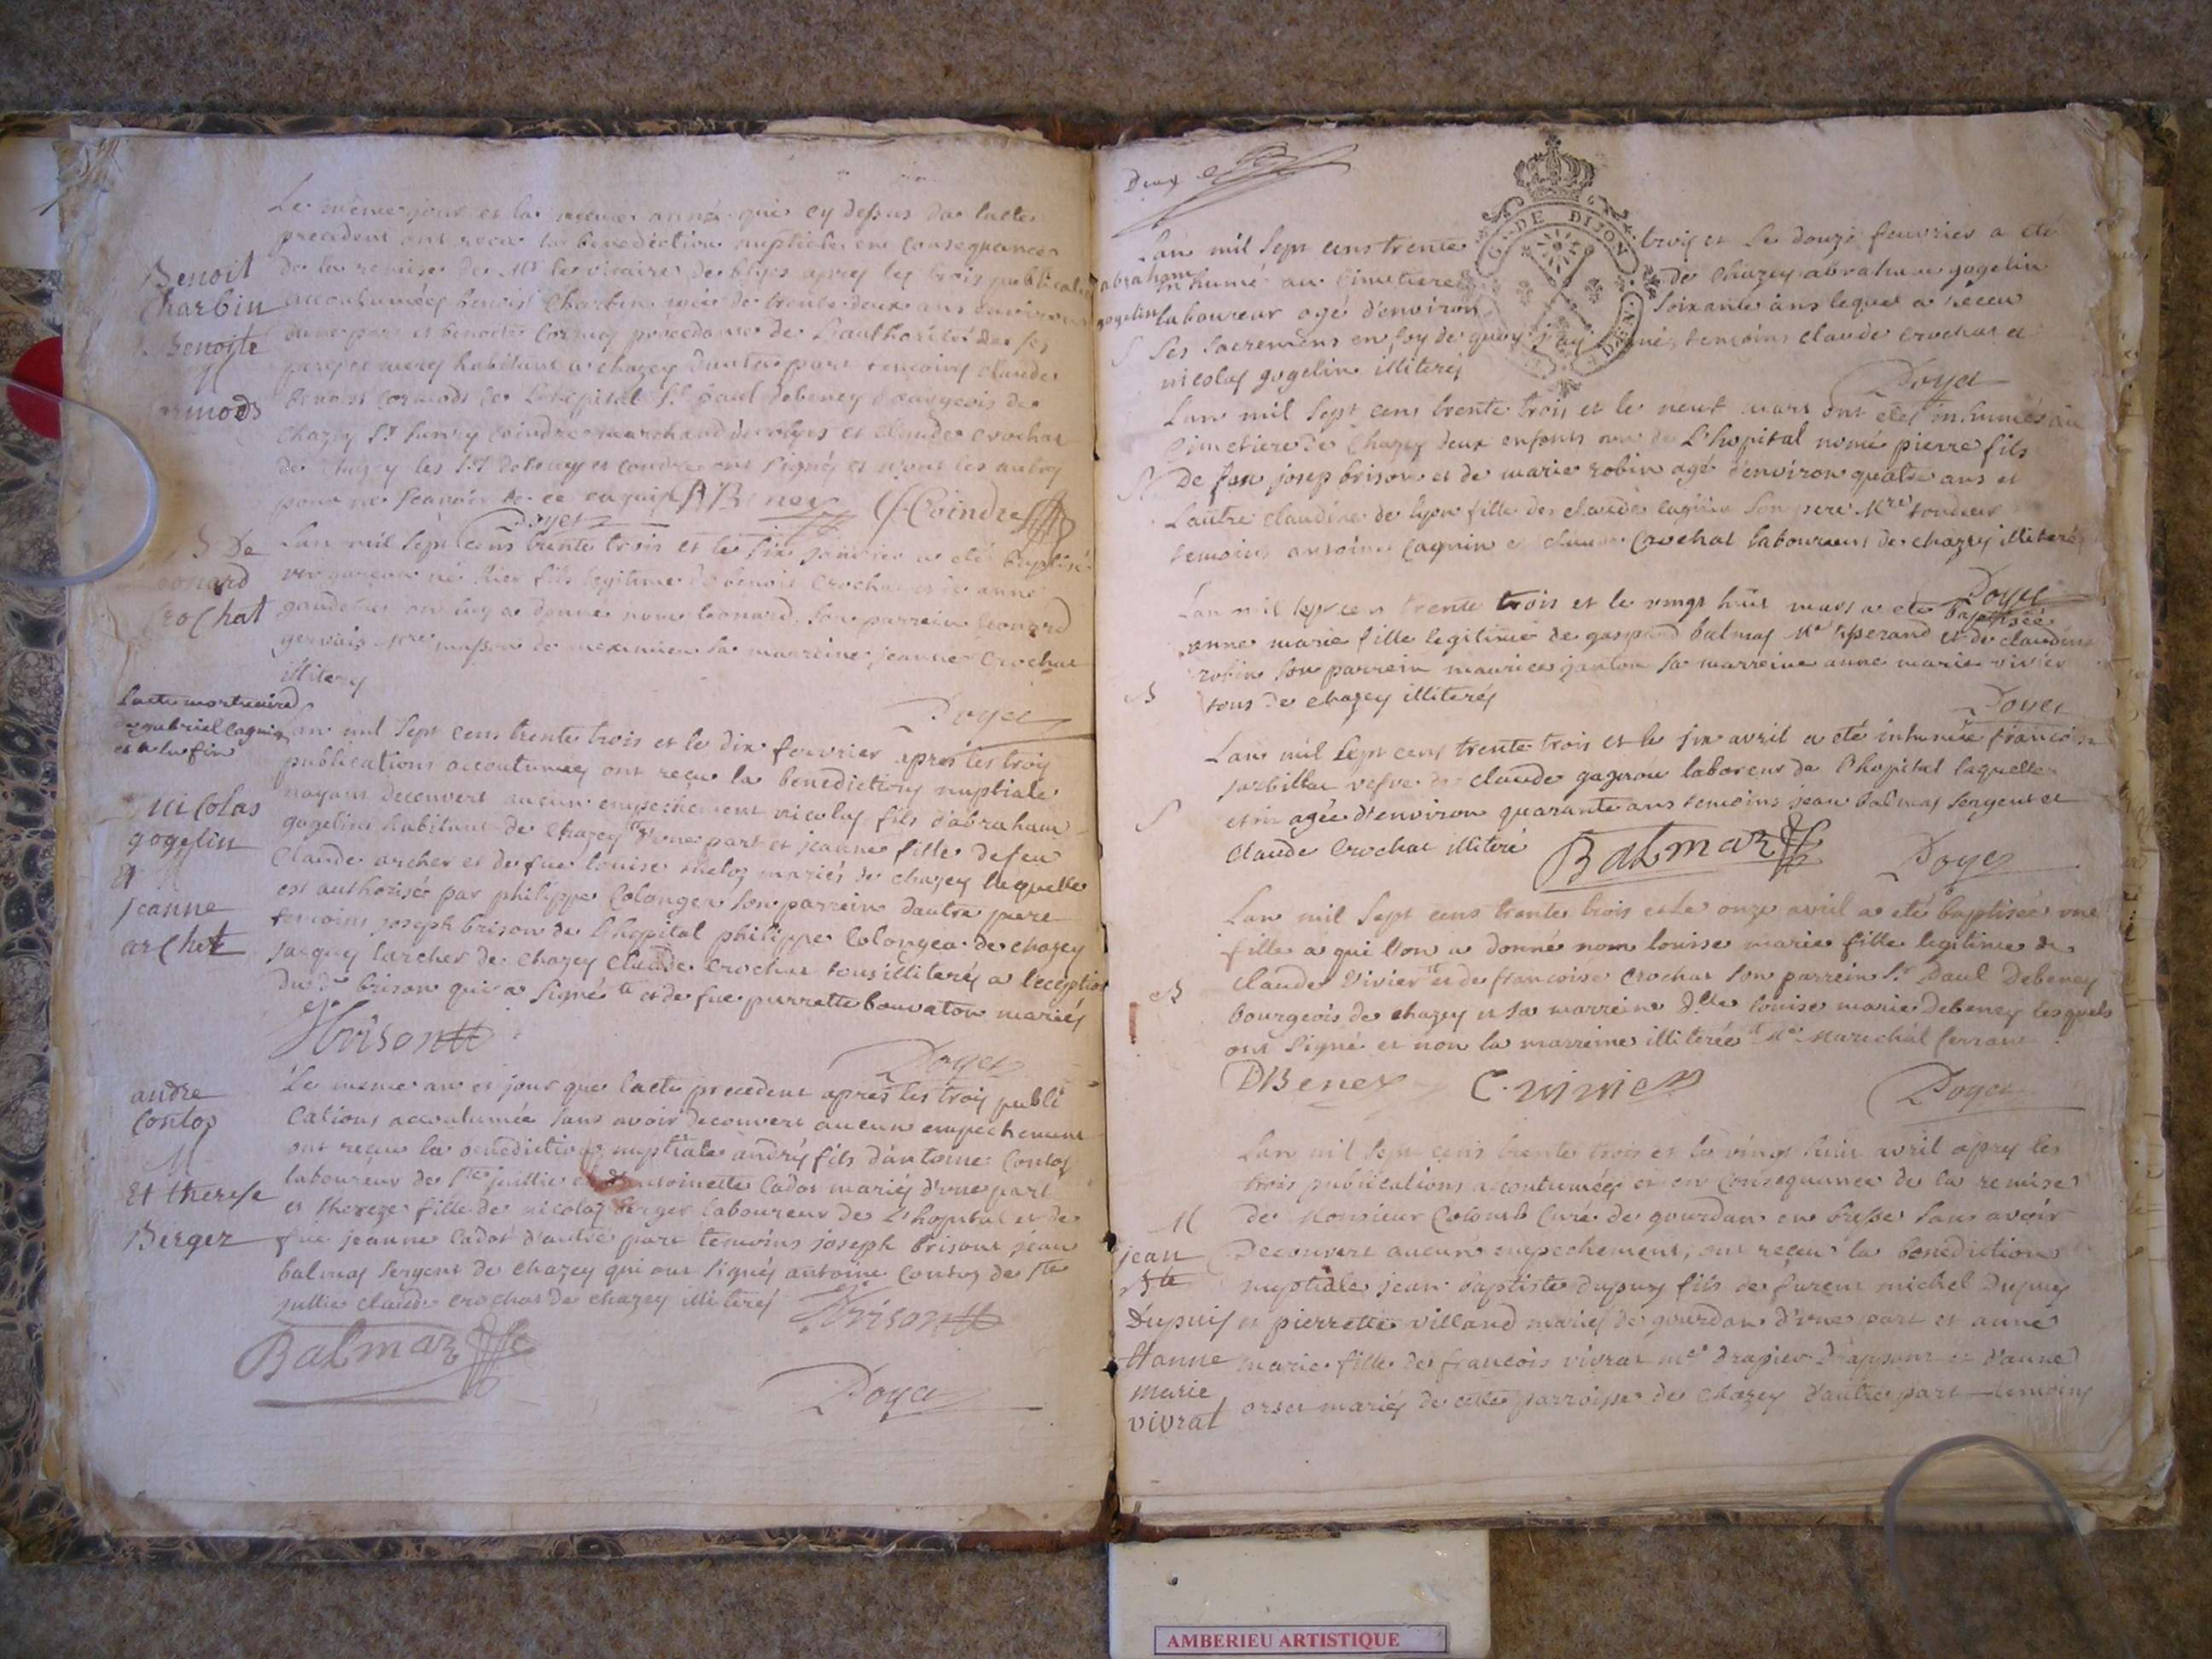 Le même jour et la meme anné que cy dessus de lacte
precedent ont recu la benediction nuptiale en consequance
de la remise de Mr le vicaire de blyes apres les trois publicatio
accoutumées benoist Charbin agé de trente deux ans environ
dune part et benoite Cormod procedante de l'authorité de ses
peres et meres habitant a chazey dautre part temoins claude
benoist cormods de L'hopital Sr paul debeney bourgeois de
Chazey Sr Coindre marchand de blyes et claude crochat
de chazey les Srs debeney et coindre ont signés et non les autres
pour ne scavoir de ce enquis ABeney Coindre
Doyet
Benoit
Charbin
Benoite
Lan mil sept cens trente trois et le six janvier a eté baptisé
un garcon né hier fils legitime de benoit Crochat et de anne
on luy a donné nom leonard son parrein leonard
gervais Mre masson de meximieu sa marreine jeanne Crochat
illiterés
Doyet
B De
Crochat
Lacte mortuaire
de gabriel Cagnin
est a la fin
Lan mil sept cens trente trois et le dix fevvrier apres les trois
publications accoutumées ont reçu la benediction nuptiale
nayant decouvert aucun empechement nicolas fils d'abraham
gogelin habitant de chazey d'une part et jeanne fille de feu
Claude archer et de fue louise mariés de chazey laquelle
est authorisée par philippe Colonges son parrein dautre part
temoins joseph brison de l'hopital philippe Colonges de chazey
jacques larcher de chazey claude crochat tous illiterés a l'exception
du d. brison qui a signé et de fue purrette bouvaton mariés
Brison
Doyet
nicolas
gogelin
M
Et
jeanne
archet
Le meme an et jour que lacte precedent apres les trois publi
cations accoutumée sans avoir decouvert aucun empechement
ont reçu la benediction nuptiale andré fils d'antoine Contos
laboureur de Ste juillie et d'antoinette Cadot mariés d'une part
et thereze fille de nicolas berger laboureur de L'hopital et de
fue jeanne Cadot d'autre part temoins joseph brison jean
balmas sergent de chazey qui ont signés antoine Contos de Ste
jullie claude crochat de chazey illiterés Brison
Balmaz
Doyet
andre
Contos
M
Et therese
Berger
Deux
DE DIJON
G. DEN.
Lan mil sept cens trente trois et le douze fevvrier a eté
inhumé au cimetiere de Chazey abraham gogelin
laboureur agé d'environ soixante ans lequel a receu
ses sacremens en foy de quoy j'ay signé temoins claude crochat et
nicolas gogelin illiterés
Doyet
abraham
gogelin
S
Lan mil sept cens trente trois et le neuf mars ont etés inhumés au
cimetiere de Chazey deux enfants un de L'hopital nomé pierre fils
De feu josep brison et de marie robin agé d'environ quatre ans et
Lautre claudine de lyon fille de claude son pere Mre tondeur
temoins antoine Cagnin et claude Crochat laboureurs de chazey illiterés
Doyet
Lan mil sept cen trente trois et le vingt huit mars a eté baptisée
anne marie fille legitime de gaspard balmas Me tisserand et de claudine
robin son parrein maurice janton sa marreine anne marie vivier
tous de chazey illiterés
Doyet
B
Lan mil sept cens trente trois et le six avril a eté inhumée francoise
vefve de claude gagnou laboreur de l'hopital laquelle
etoit agée d'environ quarante ans temoins jean balmas sergent et
claude Crochat illiteré
Balmaz
Doyet
S
Lan mil sept cens trente trois et le onze avril a eté baptisée une
fille a qui l'on a donné nom louisse marie fille legitime de
claude Vivier et de francoise Crochat son parrein Sr Paul Debeney
bourgeois de chazey et sa marreine dlle louise marie Debeney lesquels
ont signé et non la marreine illiterée Me Marechal ferrant
DBeney C. vivier
Doyet
B
Lan mil sept cens trente trois et le vingt huit avril apres les
trois publications accoutumées et en consequance de la remise
de Monsieur Colomb Curé de gourdan en bresse sans avoir
Decouvert aucun empechement, ont receu la benediction
nuptiale jean baptiste dupuy fils de furent michel Dupuy
et pierrette villand mariés de gourdan d'une part et anne
marie fille de francois vivrat me drapier drapeur et d'anne
orset mariés de cette parroisse de Chazey d'autre part temoins
M
jean
Bte
Dupuis
Et anne
marie
vivrat
AMBERIEU ARTISTIQUE